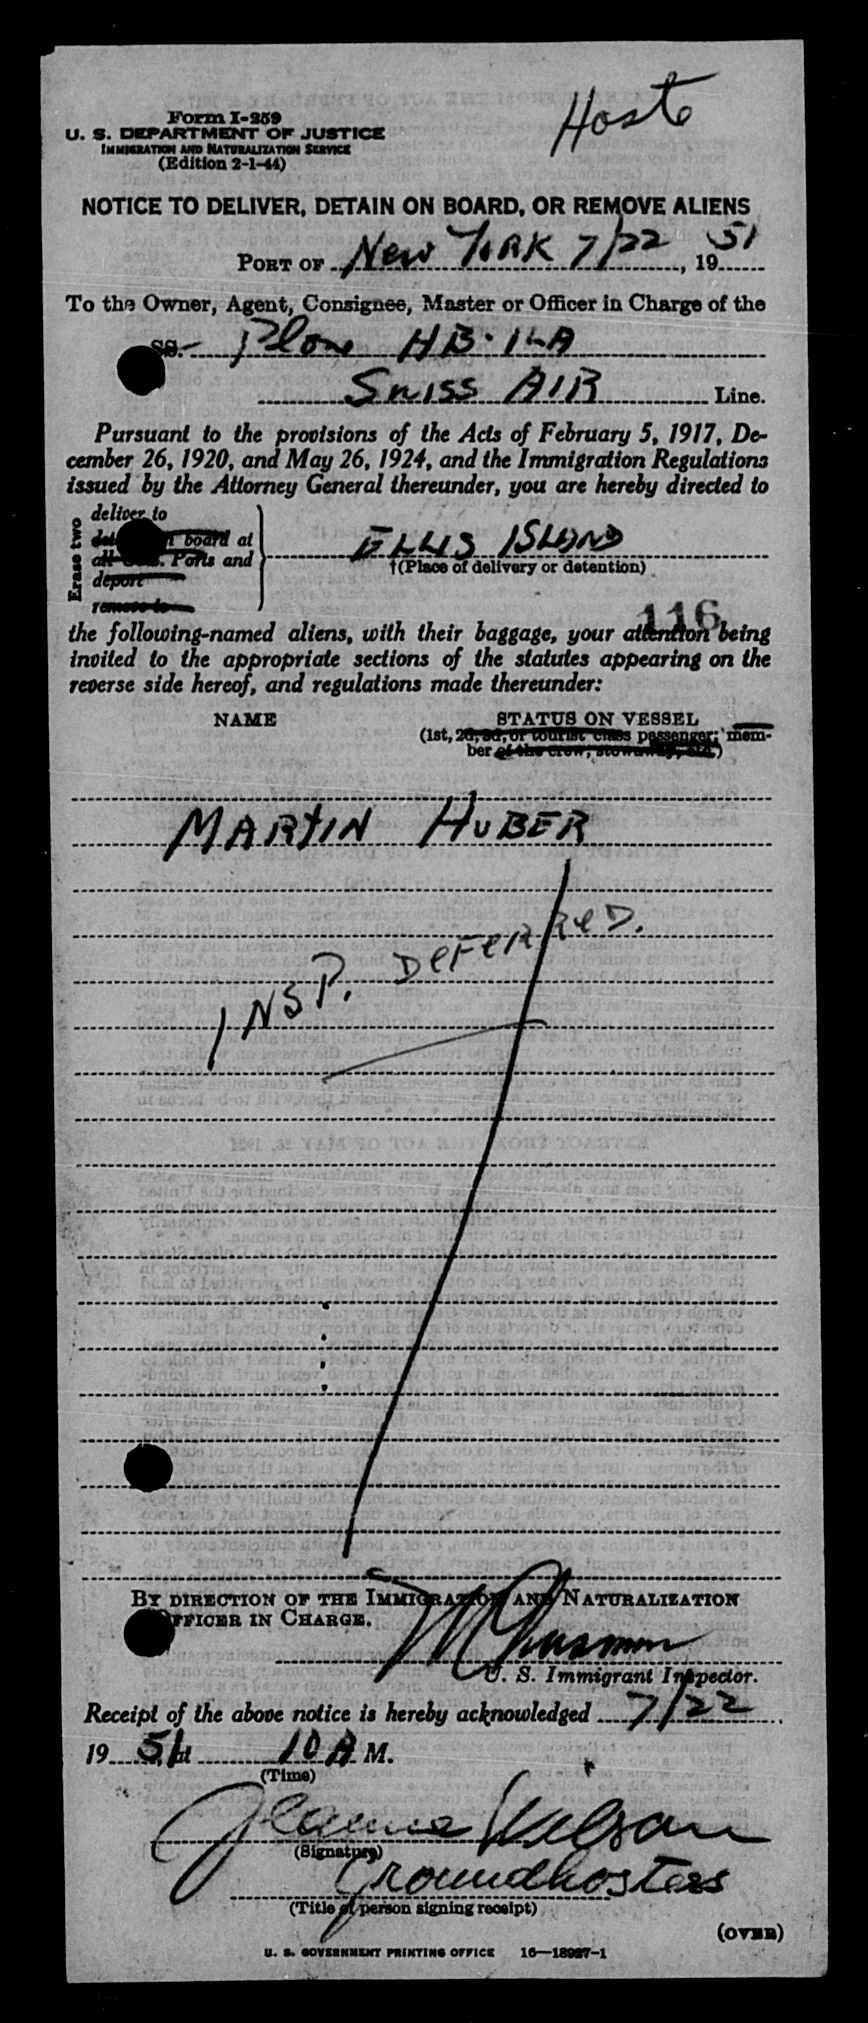 Hoste
Form I-259
U. S. DEPARTMENT OF JUSTICE
IMMIGRATION AND NATURALIZATION SERVICE
(Edition 2-1-44)
NOTICE TO DELIVER, DETAIN ON BOARD, OR REMOVE ALIENS
PORT OF New York 7/22, 1951
To the Owner, Agent, Consignee, Master or Officer in Charge of the
SS. Plane HB-ILA
Swiss AIR Line.
Pursuant to the provisions of the Acts of February 5, 1917, De-
cember 26, 1920, and May 26, 1924, and the Immigration Regulations
issued by the Attorney General thereunder, you are hereby directed to
Erase two
deliver to
board at
all Ports and
deport
remove to
ELLIS ISLAND
†(Place of delivery or detention)
116
the following-named aliens, with their baggage, your attention being
invited to the appropriate sections of the statutes appearing on the
reverse side hereof, and regulations made thereunder:
NAME STATUS ON VESSEL
(1st, 2d, 3d, or tourist class passenger; mem-
ber of the crew, stowaway, etc.)
MARTIN HUBER
INSP. DEFERRED.
BY DIRECTION OF THE IMMIGRATION AND NATURALIZATION
OFFICER IN CHARGE.
U. S. Immigrant Inspector.
Receipt of the above notice is hereby acknowledged 7/22
1951 at 10 A M.
(Time)
Jeanne Wilson
(Signature)
Groundhostess
(Title of person signing receipt)
(OVER)
U. S. GOVERNMENT PRINTING OFFICE 16—18927-1